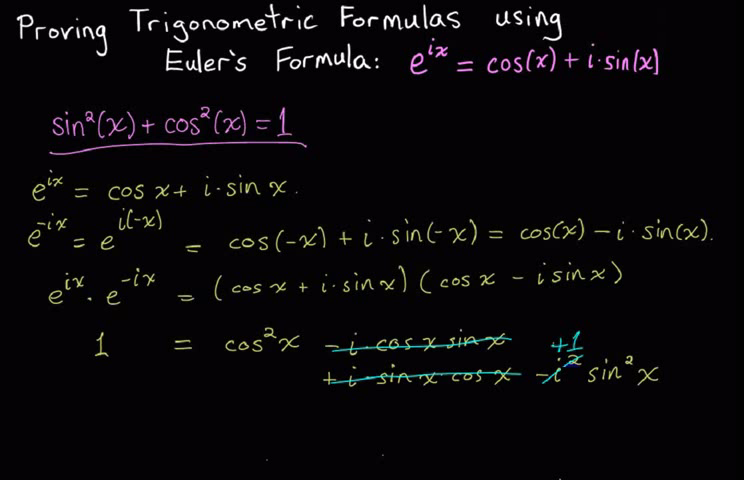 Proving Trigonometric Formulas using
Euler's Formula: e^{ix} = cos(x) + i·sin(x)
sin²(x) + cos²(x) = 1
e^{ix} = cos x + i·sin x.
e^{-ix} = e^{i(-x)} = cos(-x) + i·sin(-x) = cos(x) - i·sin(x).
e^{ix} · e^{-ix} = (cos x + i·sin x)(cos x - i sin x)
+1
1 = cos²x - i·cos x sin x
+ i·sin x·cos x - i² sin²x